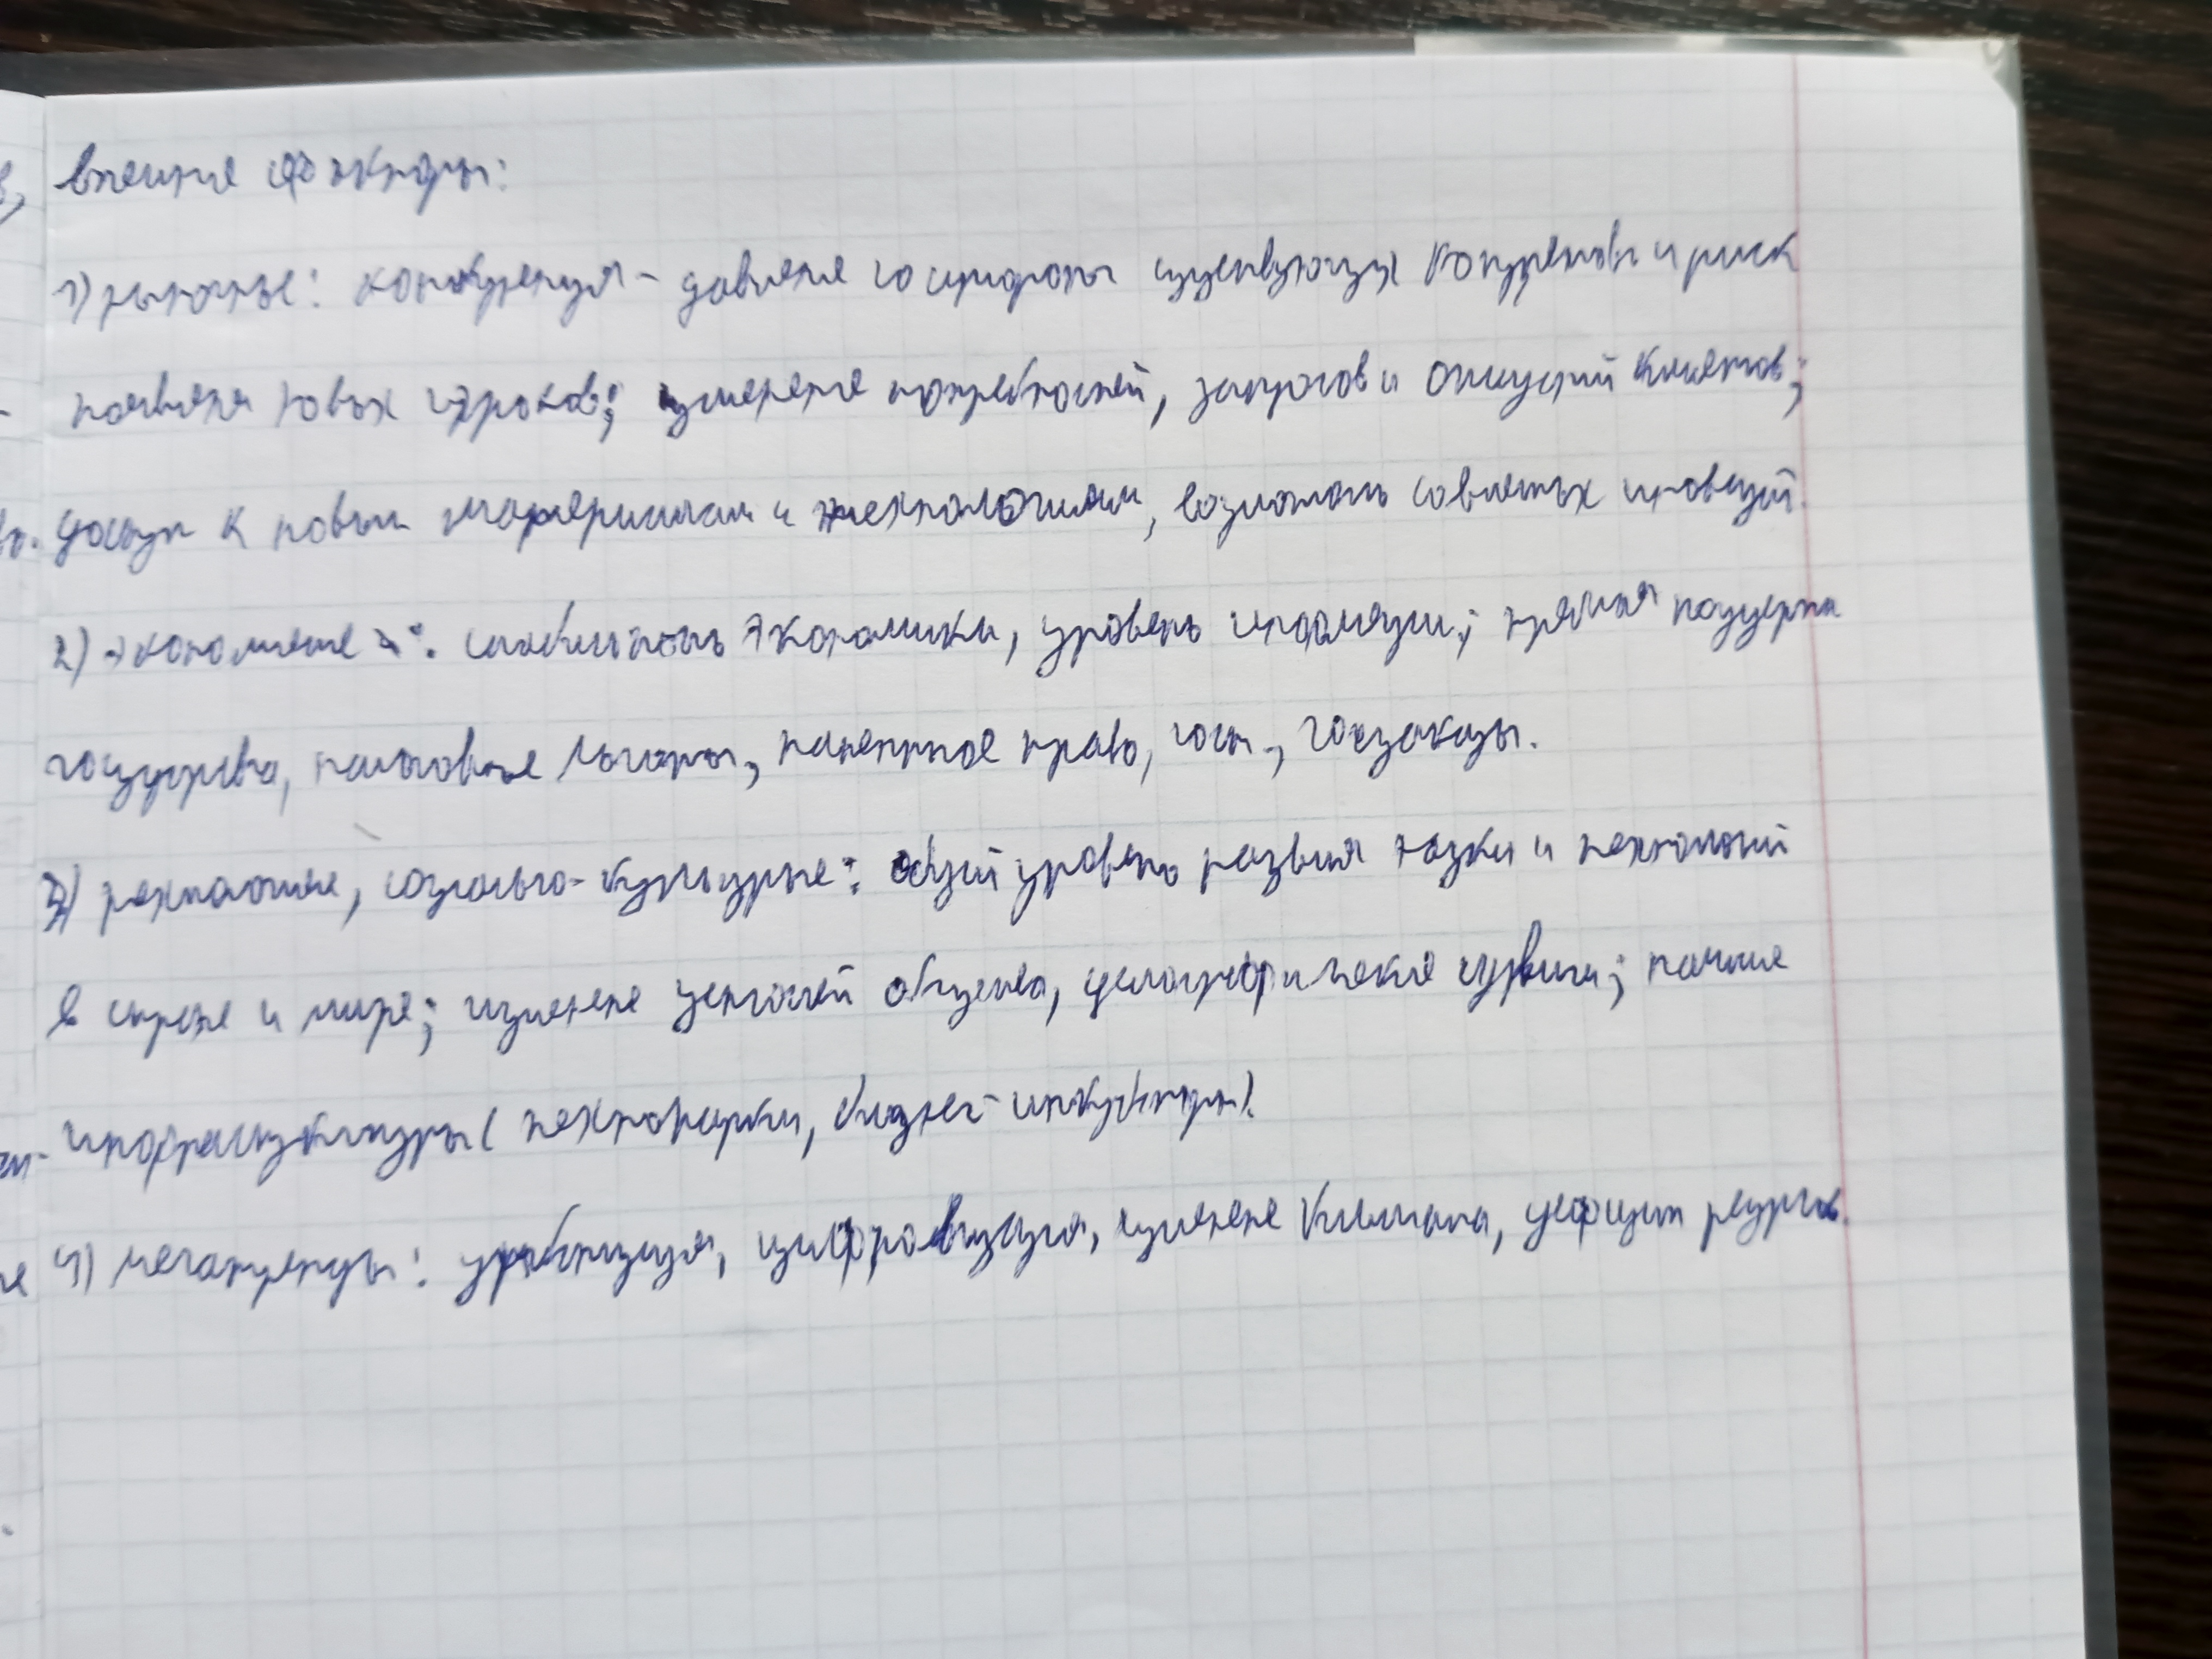 внешние факторы:
1) рыночные: конкуренция - давление со стороны существующих конкурентов и риск
появления новых игроков; изменение потребностей, запросов и ожиданий клиентов;
доступ к новым материалам и технологиям, возможность совместных инноваций.
2) экономические: стабильность экономики, уровень инфляции; прямая поддержка
государства, налоговые льготы, патентное право, гост, госзаказы.
3) технологические, социально-культурные: общий уровень развития науки и технологий
в стране и мире; изменение ценностей общества, демографические сдвиги; наличие
инфраструктуры (технопарки, бизнес-инкубаторы).
4) мегатренды: урбанизация, цифровизация, изменение климата, дефицит ресурсов.